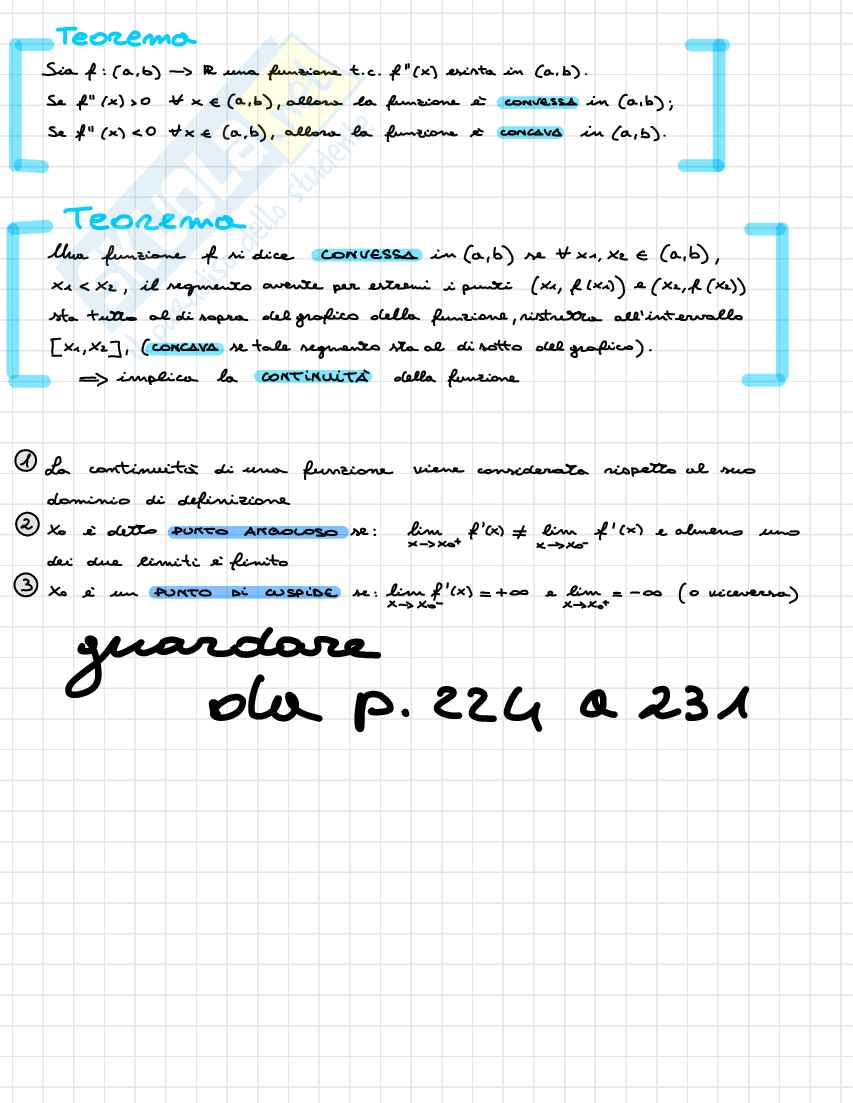 Teorema
Sia f : (a,b) → ℝ una funzione t.c. f''(x) esista in (a,b).
Se f''(x) > 0 ∀ x ∈ (a,b), allora la funzione è CONVESSA in (a,b);
Se f''(x) < 0 ∀ x ∈ (a,b), allora la funzione è CONCAVA in (a,b).
Teorema
Una funzione f si dice CONVESSA in (a,b) se ∀ x₁, x₂ ∈ (a,b),
x₁ < x₂, il segmento avente per estremi i punti (x₁, f(x₁)) e (x₂, f(x₂))
sta tutto al di sopra del grafico della funzione, ristretta all'intervallo
[x₁, x₂], (CONCAVA se tale segmento sta al di sotto del grafico).
⟹ implica la CONTINUITÀ della funzione
① La continuità di una funzione viene considerata rispetto al suo
dominio di definizione
② x₀ è detto PUNTO ANGOLOSO se: lim x→x₀⁺ f'(x) ≠ lim x→x₀⁻ f'(x) e almeno uno
dei due limiti è finito
③ x₀ è un PUNTO DI CUSPIDE se: lim x→x₀⁻ f'(x) = +∞ e lim x→x₀⁺ = -∞ (o viceversa)
guardare
da p. 224 a 231
SKUOLA.net
il paradiso dello studente